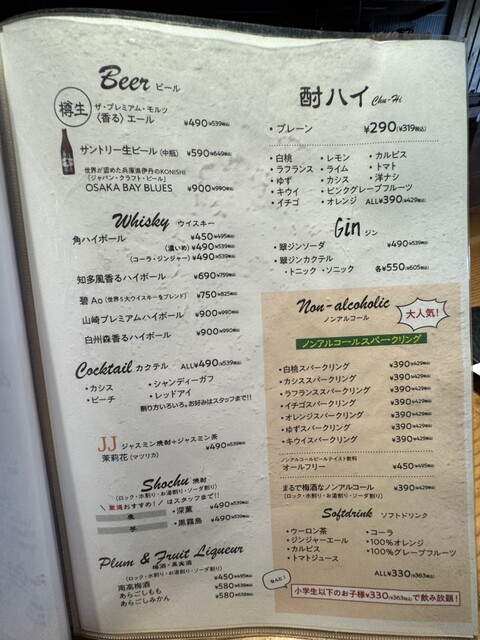 Beer ビール
樽生
ザ・プレミアム・モルツ
〈香る〉エール ¥490(¥539税込)
サントリー生ビール(中瓶) ¥590(¥649税込)
世界が認めた兵庫県伊丹のKONISHI
「ジャパン・クラフト・ビール」
OSAKA BAY BLUES ¥900(¥990税込)
Whisky ウイスキー
角ハイボール ¥450(¥495税込)
(濃いめ) ¥490(¥539税込)
(コーラ・ジンジャー) ¥490(¥539税込)
知多風香るハイボール ¥690(¥759税込)
碧Ao(世界5大ウイスキーをブレンド) ¥750(¥825税込)
山崎プレミアムハイボール ¥900(¥990税込)
白州森香るハイボール ¥900(¥990税込)
Cocktail カクテル ALL¥490(¥539税込)
・カシス ・シャンディーガフ
・ピーチ ・レッドアイ
割り方いろいろ。お好みはスタッフまで!!
JJ ジャスミン焼酎+ジャスミン茶
茉莉花(マツリカ) ¥490(¥539税込)
Shochu 焼酎
(ロック・水割り・お湯割り・ソーダ割り)
おすすめ!/はスタッフまで!!
麦 ・深薫 ¥490(¥539税込)
芋 ・黒霧島 ¥490(¥539税込)
Plum & Fruit Liqueur
梅酒・果実酒
(ロック・水割り・お湯割り・ソーダ割り)
南高梅酒 ¥450(¥495税込)
あらごしもも ¥580(¥638税込)
あらごしみかん ¥580(¥638税込)
酎ハイ Chu-Hi
・プレーン ¥290(¥319税込)
・白桃 ・レモン ・カルピス
・ラフランス ・ライム ・トマト
・ゆず ・カシス ・洋ナシ
・キウイ ・ピンクグレープフルーツ
・イチゴ ・オレンジ ALL¥390(¥429税込)
Gin ジン
・翠ジンソーダ ¥490(¥539税込)
・翠ジンカクテル
・トニック ・ソニック 各¥550(¥605税込)
Non-alcoholic
ノンアルコール
大人気!
ノンアルコールスパークリング
・白桃スパークリング ¥390(¥429税込)
・カシススパークリング ¥390(¥429税込)
・ラフランススパークリング ¥390(¥429税込)
・イチゴスパークリング ¥390(¥429税込)
・オレンジスパークリング ¥390(¥429税込)
・ゆずスパークリング ¥390(¥429税込)
・キウイスパークリング ¥390(¥429税込)
ノンアルコールビールテイスト飲料
オールフリー ¥450(¥495税込)
まるで梅酒なノンアルコール ¥390(¥429税込)
(ロック・水割り・お湯割り・ソーダ割り)
Softdrink ソフトドリンク
・ウーロン茶 ・コーラ
・ジンジャーエール ・100%オレンジ
・カルピス ・100%グレープフルーツ
・トマトジュース
ALL¥330(¥363税込)
なんと!
小学生以下のお子様¥330(¥363税込)で飲み放題!